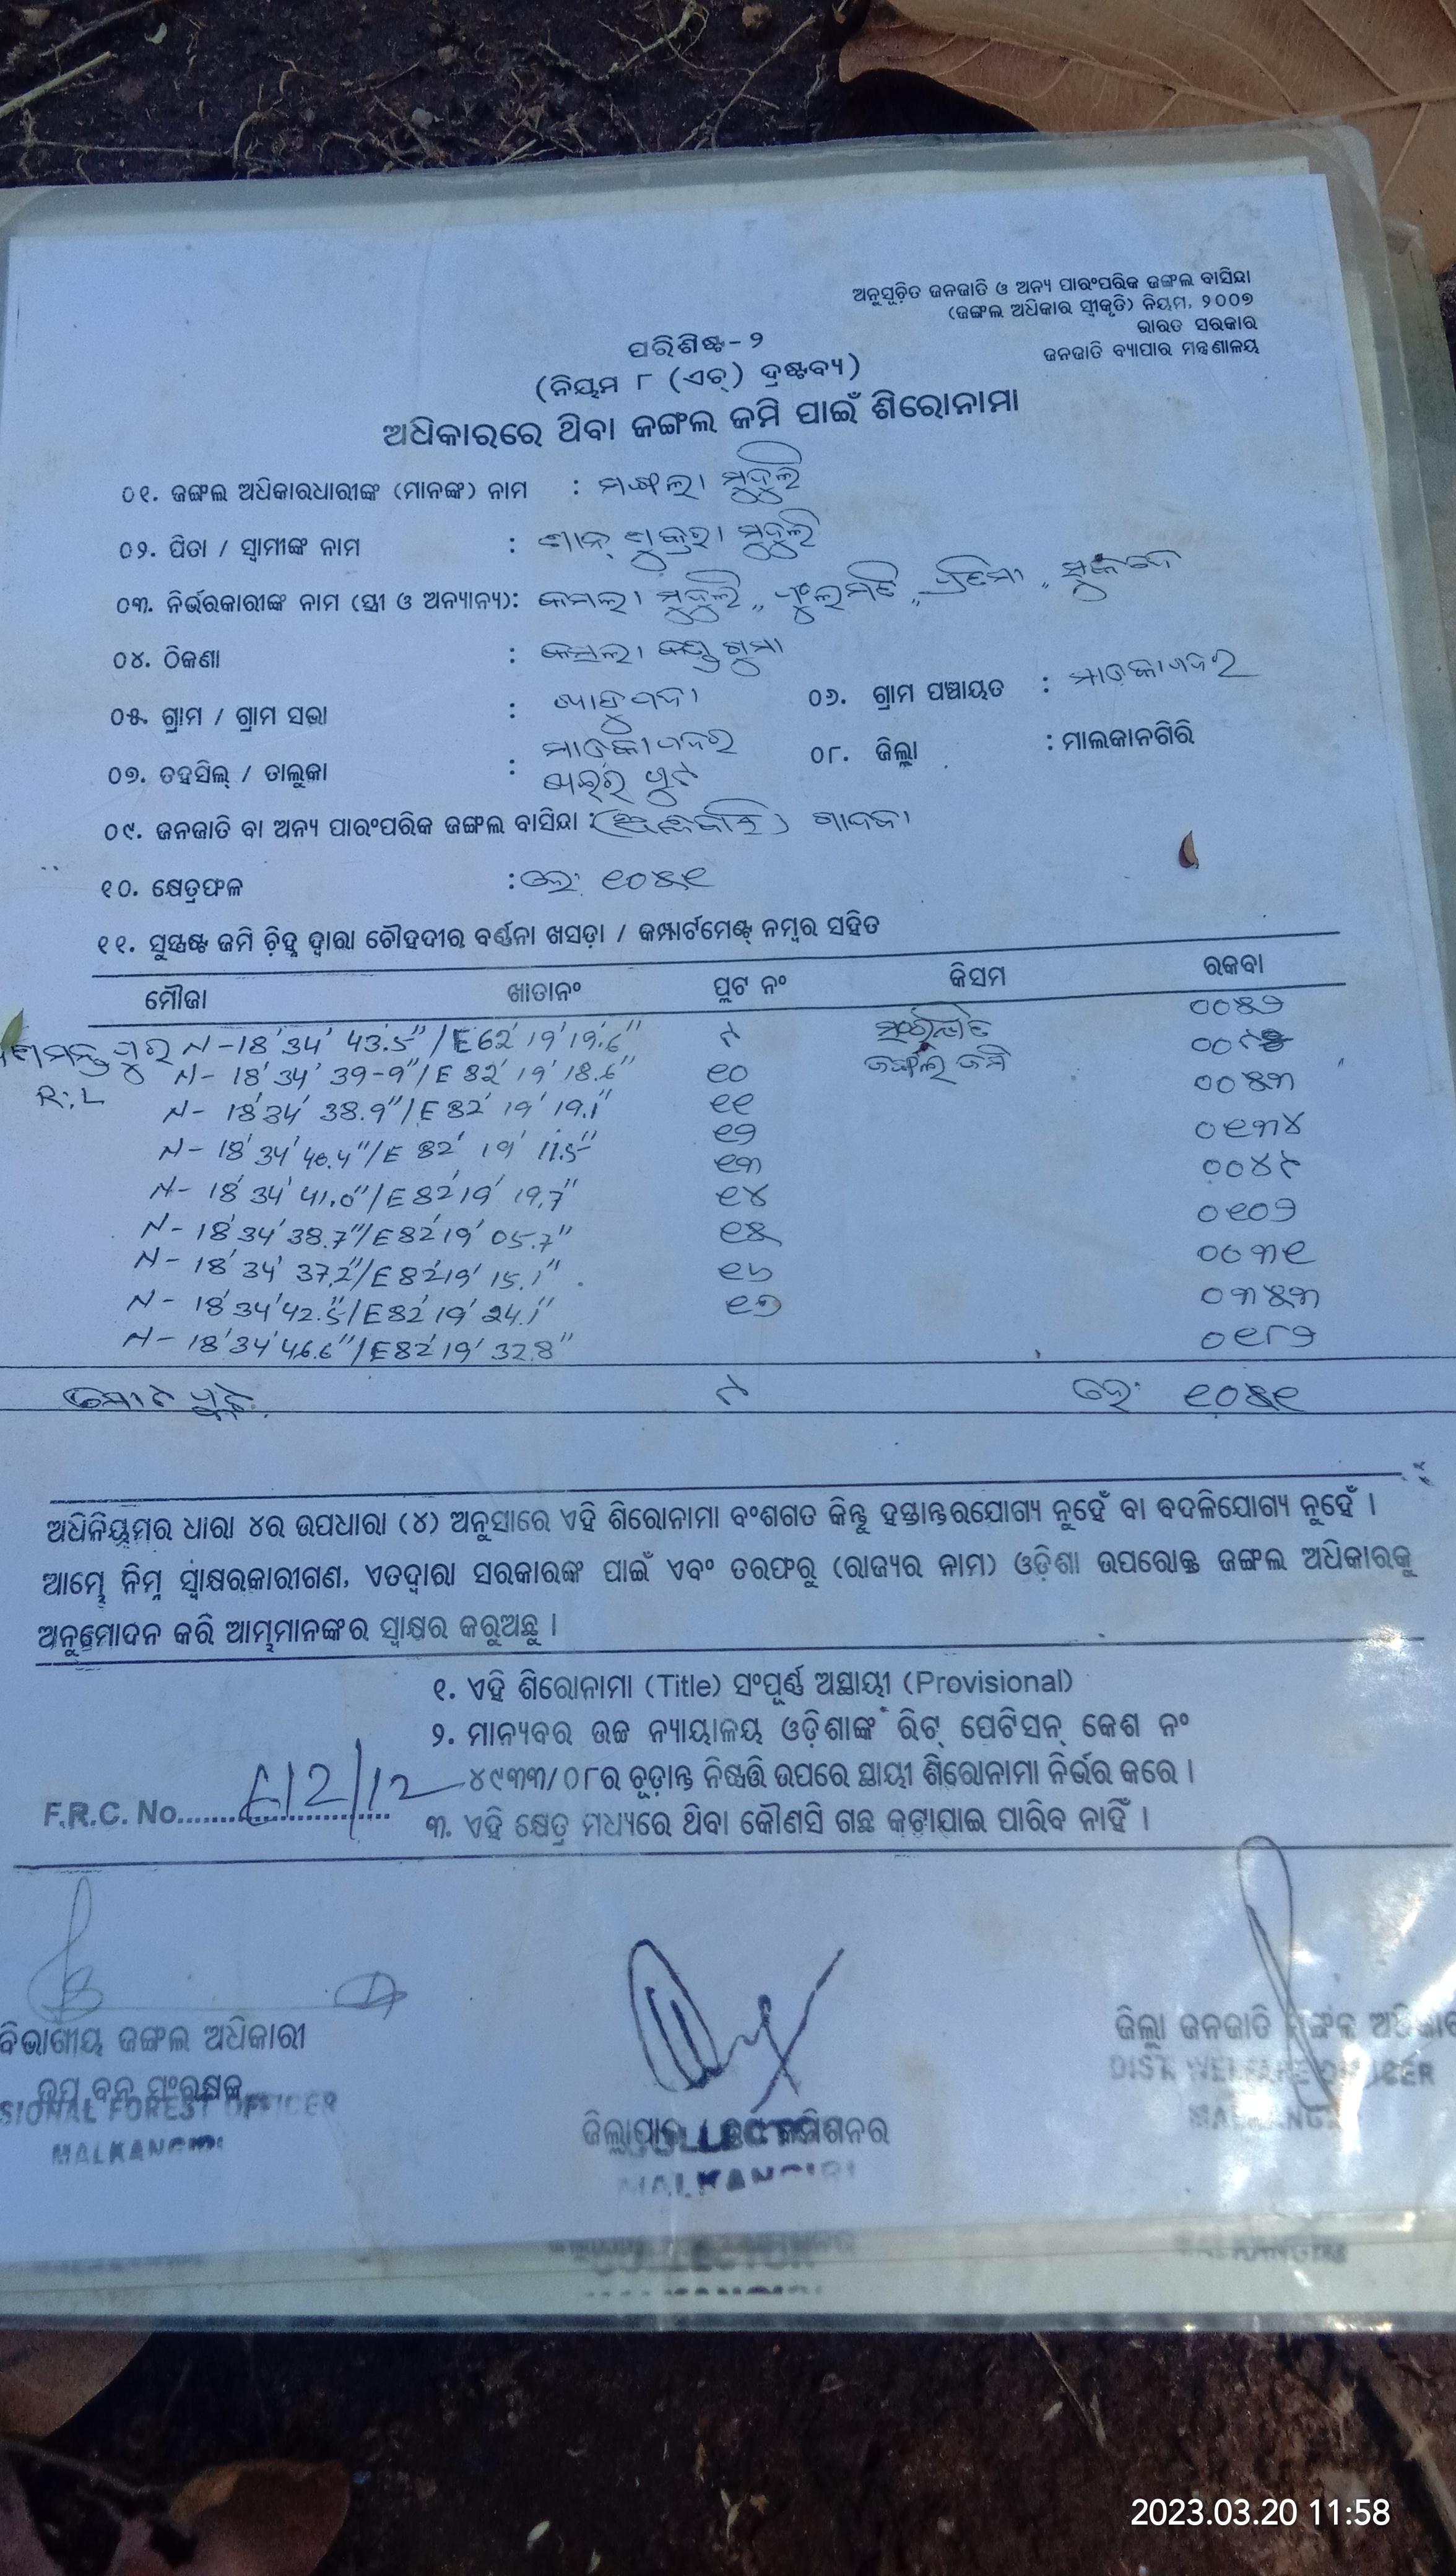 ଅନୁସୂଚିତ ଜନଜାତି ଓ ଅନ୍ୟ ପାରଂପରିକ ଜଙ୍ଗଲ ବାସିନ୍ଦା
(ଜଙ୍ଗଲ ଅଧିକାର ସ୍ୱୀକୃତି) ନିୟମ, ୨୦୦୭
ଭାରତ ସରକାର
ଜନଜାତି ବ୍ୟାପାର ମନ୍ତ୍ରଣାଳୟ
ପରିଶିଷ୍ଟ-୨
(ନିୟମ ୮ (ଏଚ୍) ଦ୍ରଷ୍ଟବ୍ୟ)
ଅଧିକାରରେ ଥିବା ଜଙ୍ଗଲ ଜମି ପାଇଁ ଶିରୋନାମା
୦୧. ଜଙ୍ଗଲ ଅଧିକାରଧାରୀଙ୍କ (ମାନଙ୍କ) ନାମ : ମଙ୍ଗଲା ମୁଦୁଲି
୦୨. ପିତା / ସ୍ୱାମୀଙ୍କ ନାମ : ଶୁକ୍ରା ମୁଦୁଲି
୦୩. ନିର୍ଭରକାରୀଙ୍କ ନାମ (ସ୍ତ୍ରୀ ଓ ଅନ୍ୟାନ୍ୟ): କମଲା ମୁଦୁଲି ,, ଫୁଲମତି ,,
୦୪. ଠିକଣା :
୦୫. ଗ୍ରାମ / ଗ୍ରାମ ସଭା : ୦୬. ଗ୍ରାମ ପଞ୍ଚାୟତ :
୦୭. ତହସିଲ୍ / ତାଲୁକା : ୦୮. ଜିଲ୍ଲା : ମାଲକାନଗିରି
ଖଇରପୁଟ
୦୯. ଜନଜାତି ବା ଅନ୍ୟ ପାରଂପରିକ ଜଙ୍ଗଲ ବାସିନ୍ଦା : ଗାଦବା
୧୦. କ୍ଷେତ୍ରଫଳ : ହେ: ୧୦୫୧
୧୧. ସୁସ୍ପଷ୍ଟ ଜମି ଚିହ୍ନ ଦ୍ୱାରା ଚୌହଦୀର ବର୍ଣ୍ଣନା ଖସଡ଼ା / କମ୍ପାର୍ଟମେଣ୍ଟ୍ ନମ୍ବର ସହିତ
ମୌଜା ଖାତାନଂ ପ୍ଲଟ ନଂ କିସମ ରକବା
N-18' 34' 43.5" / E 62' 19' 19.6" ୯ ୦୦୫୨
N- 18' 34' 39-9" / E 82' 19' 18.6" ୧୦ ଜଙ୍ଗଲ ଜମି
R:L N- 18' 34' 38.9" / E 82' 19' 19.1" ୧୧ ୦୦୫୩
N- 18' 34' 40.4" / E 82' 19' 11.5" ୧୨ ୦୧୩୪
N- 18' 34' 41.0" / E 82' 19' 19.7" ୧୩ ୦୦୪୯
N- 18' 34' 38.7" / E 82' 19' 05.7" ୧୪ ୦୧୦୨
N- 18' 34' 37.2" / E 82' 19' 15.1" ୧୫ ୦୦୩୧
N- 18' 34' 42.5" / E 82' 19' 24.1" ୧୬ ୦୩୫୩
N- 18' 34' 46.6" / E 82' 19' 32.8" ୧୭ ୦୧୮୨
ମୋଟ ପ୍ଲଟ ୯ ହେ: ୧୦୫୧
ଅଧିନିୟମର ଧାରା ୪ର ଉପଧାରା (୪) ଅନୁସାରେ ଏହି ଶିରୋନାମା ବଂଶଗତ କିନ୍ତୁ ହସ୍ତାନ୍ତରଯୋଗ୍ୟ ନୁହେଁ ବା ବଦଳିଯୋଗ୍ୟ ନୁହେଁ ।
ଆମ୍ଭେ ନିମ୍ନ ସ୍ୱାକ୍ଷରକାରୀଗଣ, ଏତଦ୍ୱାରା ସରକାରଙ୍କ ପାଇଁ ଏବଂ ତରଫରୁ (ରାଜ୍ୟର ନାମ) ଓଡ଼ିଶା ଉପରୋକ୍ତ ଜଙ୍ଗଲ ଅଧିକାରକୁ
ଅନୁମୋଦନ କରି ଆମ୍ଭମାନଙ୍କର ସ୍ୱାକ୍ଷର କରୁଅଛୁ ।
୧. ଏହି ଶିରୋନାମା (Title) ସଂପୂର୍ଣ୍ଣ ଅସ୍ଥାୟୀ (Provisional)
୨. ମାନ୍ୟବର ଉଚ୍ଚ ନ୍ୟାୟାଳୟ ଓଡ଼ିଶାଙ୍କ ରିଟ୍ ପେଟିସନ୍ କେଶ ନଂ
୪୯୩୩/୦୮ର ଚୂଡ଼ାନ୍ତ ନିଷ୍ପତ୍ତି ଉପରେ ସ୍ଥାୟୀ ଶିରୋନାମା ନିର୍ଭର କରେ ।
F.R.C. No..............................
୩. ଏହି କ୍ଷେତ୍ର ମଧ୍ୟରେ ଥିବା କୌଣସି ଗଛ କଟାଯାଇ ପାରିବ ନାହିଁ ।
ବିଭାଗୀୟ ଜଙ୍ଗଲ ଅଧିକାରୀ
ଉପ ବନ ସଂରକ୍ଷକ
SIONAL FOREST OFFICER
MALKANGIRI
ଜିଲ୍ଲାପାଳ
COLLECTOR
MALKANGIRI
ଜିଲ୍ଲା ଜନଜାତି ମଙ୍ଗଳ
DIST. WELFARE OFFICER
MALKANGIRI
COLLECTOR
MALKANGIRI
2023.03.20 11:58